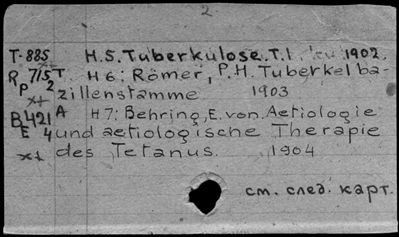 2
T-885 H.5. Tuberkulose. T. I. 1902.
R 7/5 T. H 6: Römer, P. H. Tuberkelba-
P 2 zillenstämme 1903
B 421 A H 7: Behring, E. von. Aetiologie
E 4 und aetiologische Therapie
des Tetanus. 1904
см. след. карт.